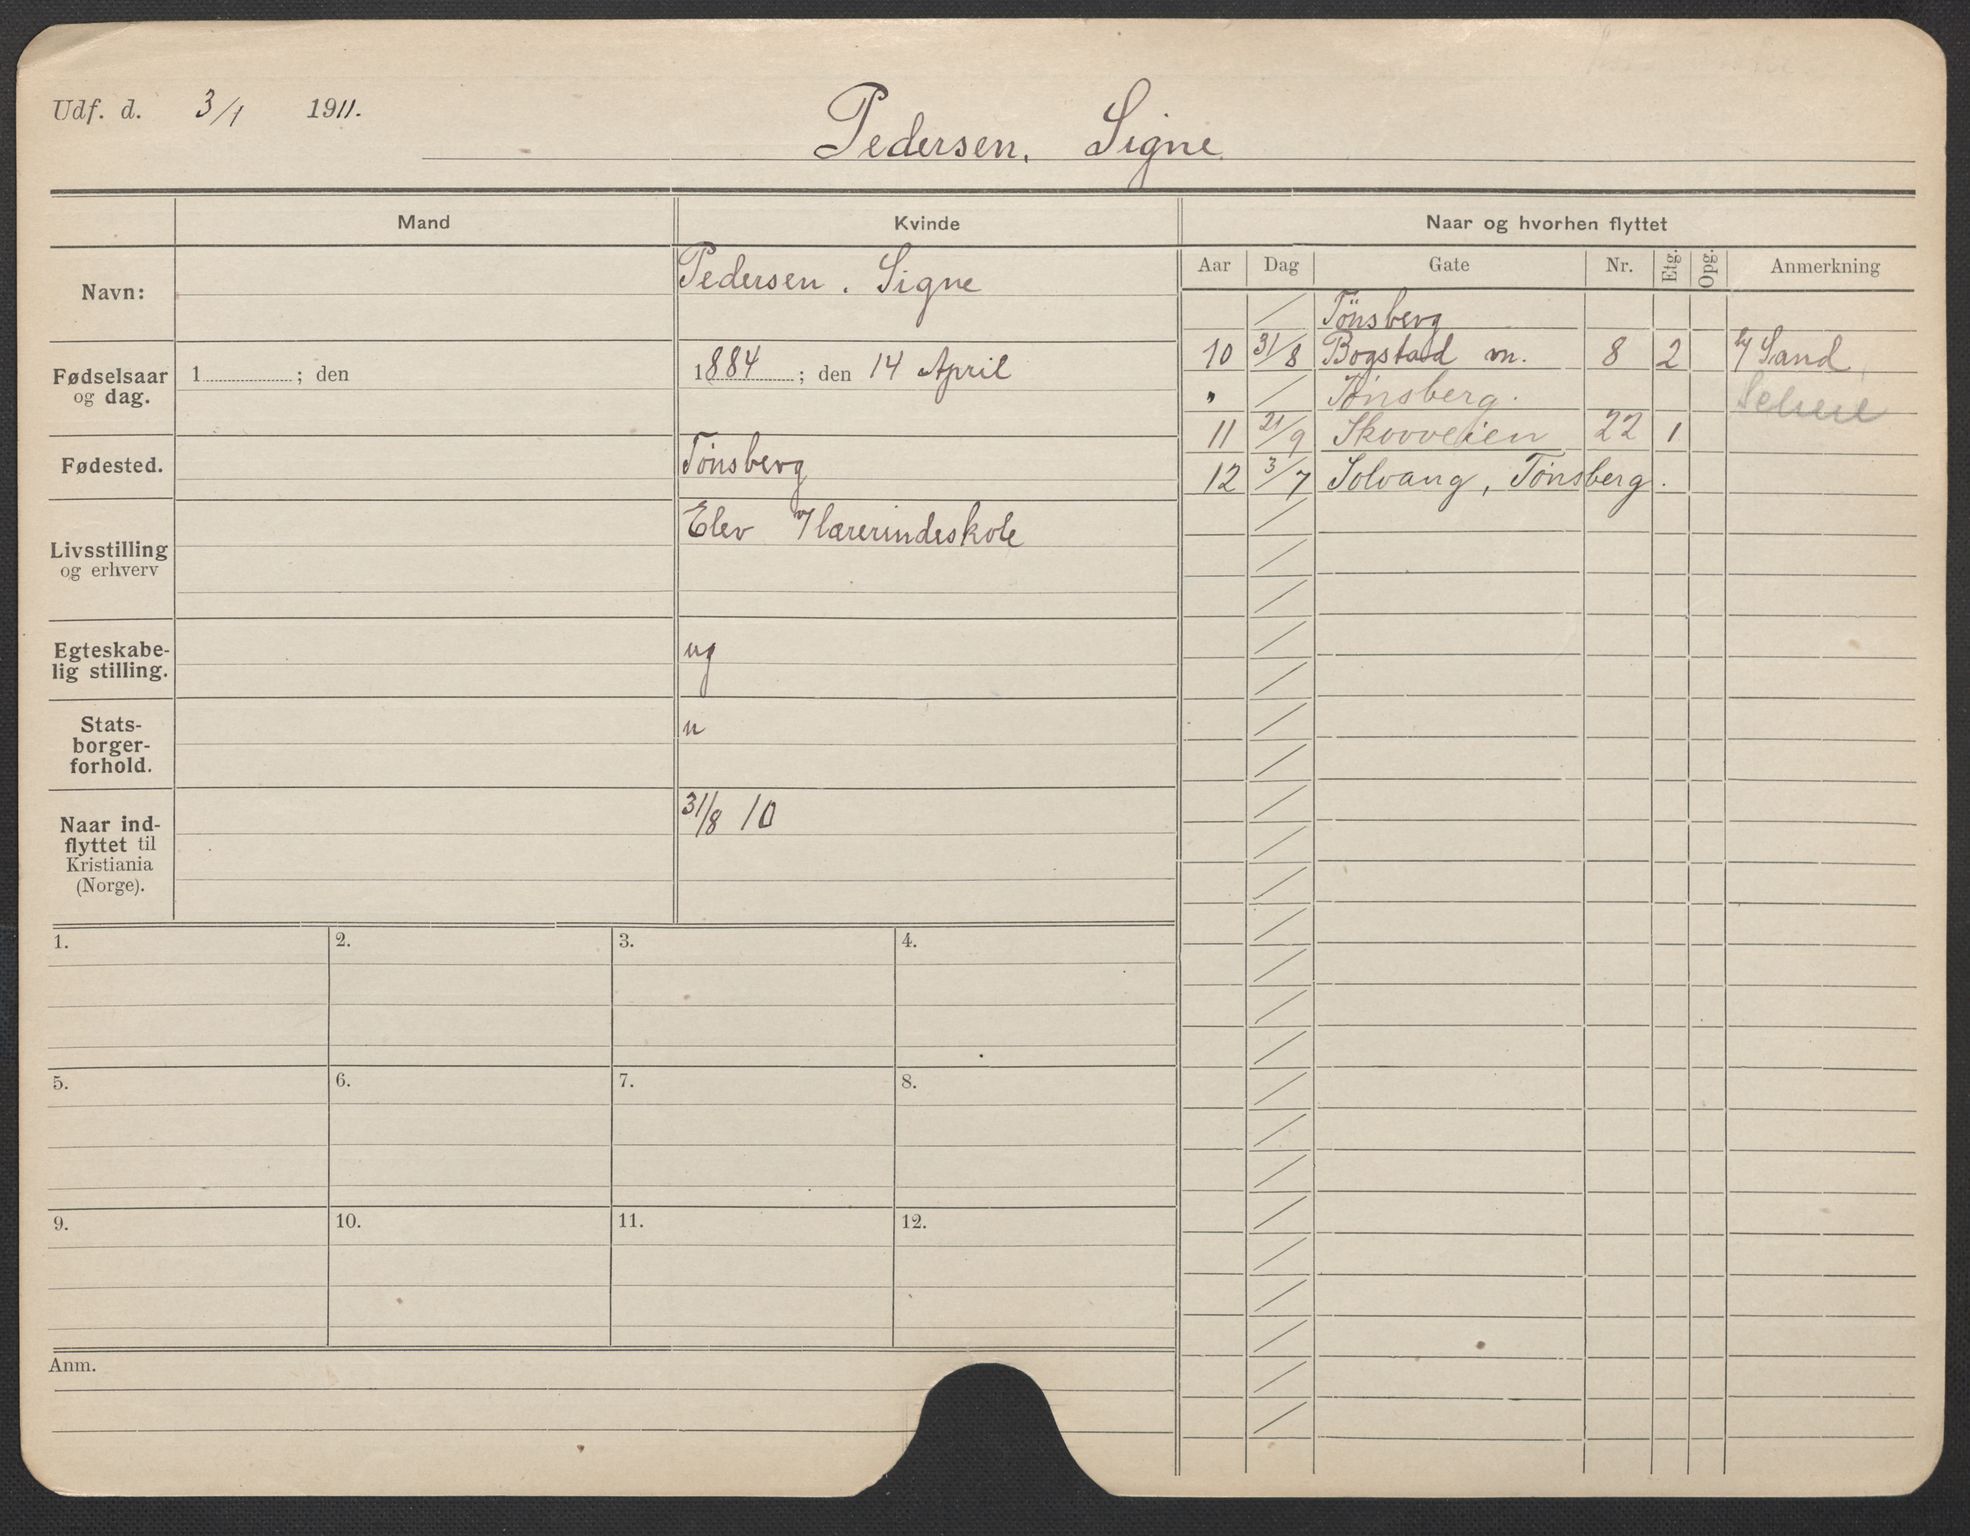 Udf. d. 3/1 1911.
Pedersen, Signe
Mand
Kvinde
Naar og hvorhen flyttet
Aar Dag Gate Nr. Etg. Opg. Anmerkning
Navn:
Pedersen. Signe
Fødselsaar og dag.
1 ; den
1884 ; den 14 April
Fødested.
Tönsberg
Livsstilling og erhverv
Elev v/ lærerindeskole
Egteskabe-
lig stilling.
ug
Stats-
borger-
forhold.
n
Naar ind-
flyttet til
Kristiania
(Norge).
31/8 10
Tönsberg
10 31/8 Bogstad v. 8 2 h/ Sand
" Tønsberg.
11 21/9 Skovveien 22 1
12 3/7 Solvang, Tønsberg.
1. 2. 3. 4.
5. 6. 7. 8.
9. 10. 11. 12.
Anm.